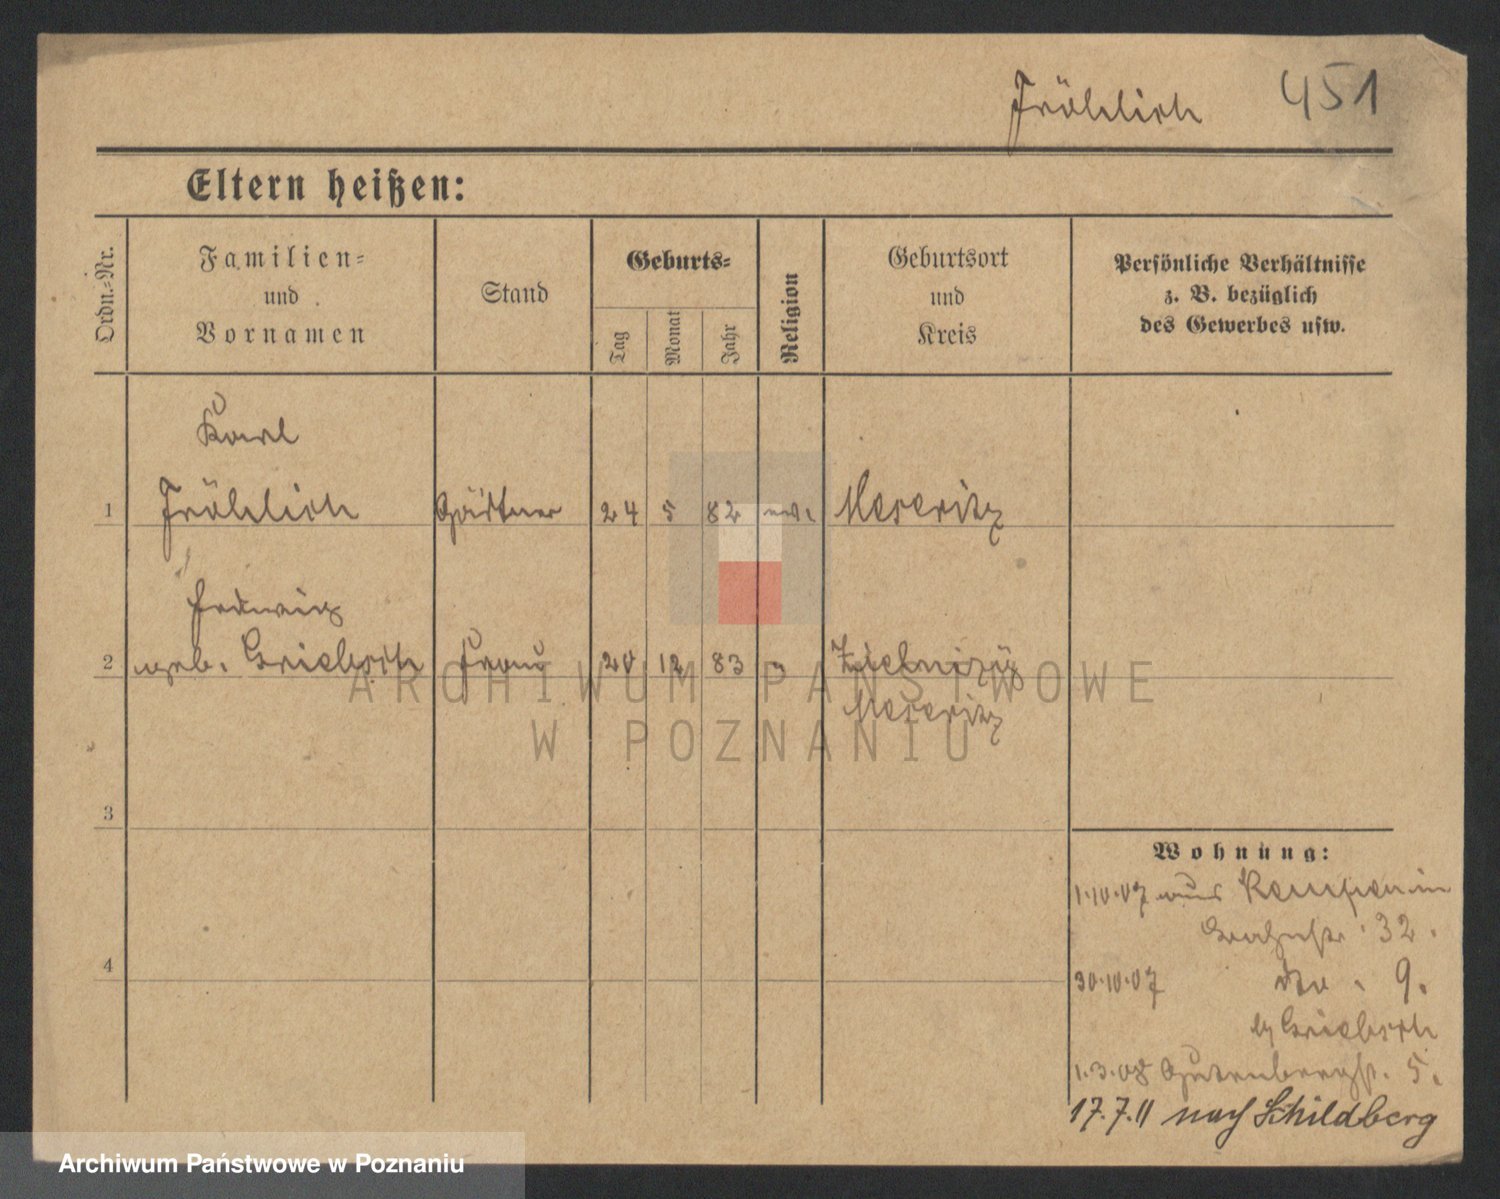 Fröhlich 451
Eltern heißen:
Ordn.-Nr.
Familien-
und
Vornamen
Stand
Geburts-
Tag
Monat
Jahr
Religion
Geburtsort
und
Kreis
Persönliche Verhältnisse
z. B. bezüglich
des Gewerbes usw.
Karl
1 Fröhlich Gärtner 24 5 82 ev. Meseritz
Hedwig
2 geb. Frau 20 12 83 "
Meseritz
3
4
Wohnung:
1.10.07 aus
32.
30.10.07 9.
1.3.08 Gutenbergstr. 5.
17.7.11 nach Schildberg
ARCHIWUM PAŃSTWOWE
W POZNANIU
Archiwum Państwowe w Poznaniu